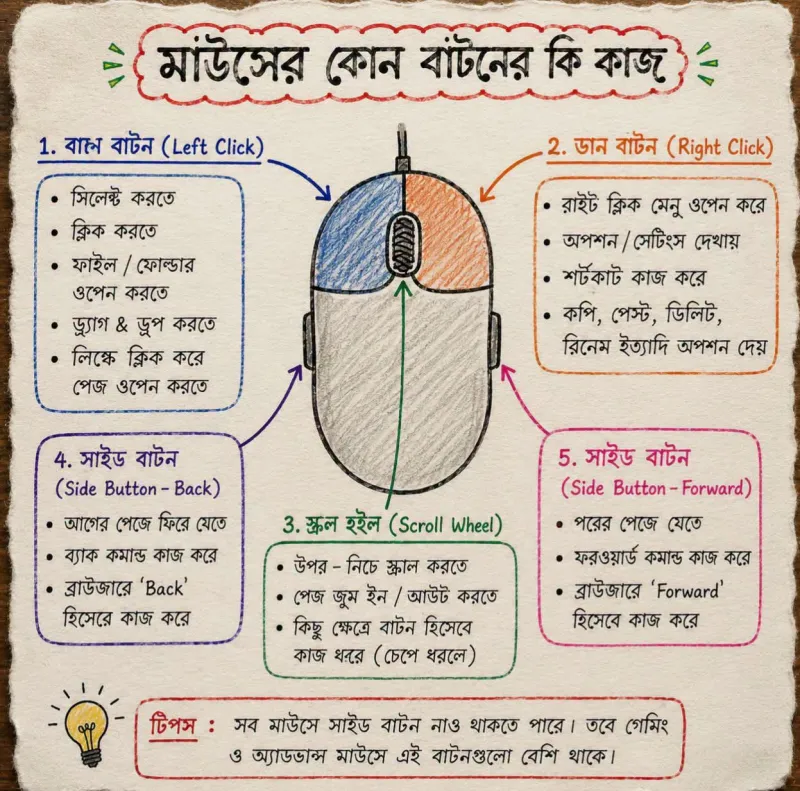 মাউসের কোন বাটনের কি কাজ
1. বাম বাটন (Left Click)
• সিলেক্ট করতে
• ক্লিক করতে
• ফাইল / ফোল্ডার
ওপেন করতে
• ড্র্যাগ & ড্রপ করতে
• লিঙ্কে ক্লিক করে
পেজ ওপেন করতে
2. ডান বাটন (Right Click)
• রাইট ক্লিক মেনু ওপেন করে
• অপশন / সেটিংস দেখায়
• শর্টকাট কাজ করে
• কপি, পেস্ট, ডিলিট,
রিনেম ইত্যাদি অপশন দেয়
4. সাইড বাটন
(Side Button – Back)
• আগের পেজে ফিরে যেতে
• ব্যাক কমান্ড কাজ করে
• ব্রাউজারে 'Back'
হিসেরে কাজ করে
3. স্ক্রল হুইল (Scroll Wheel)
• উপর – নিচে স্ক্রাল করতে
• পেজ জুম ইন / আউট করতে
• কিছু ক্ষেত্রে বাটন হিসেবে
কাজ করে (চেপে ধরলে)
5. সাইড বাটন
(Side Button – Forward)
• পরের পেজে যেতে
• ফরওয়ার্ড কমান্ড কাজ করে
• ব্রাউজারে 'Forward'
হিসেবে কাজ করে
টিপস : সব মাউসে সাইড বাটন নাও থাকতে পারে। তবে গেমিং
ও অ্যাডভান্স মাউসে এই বাটনগুলো বেশি থাকে।